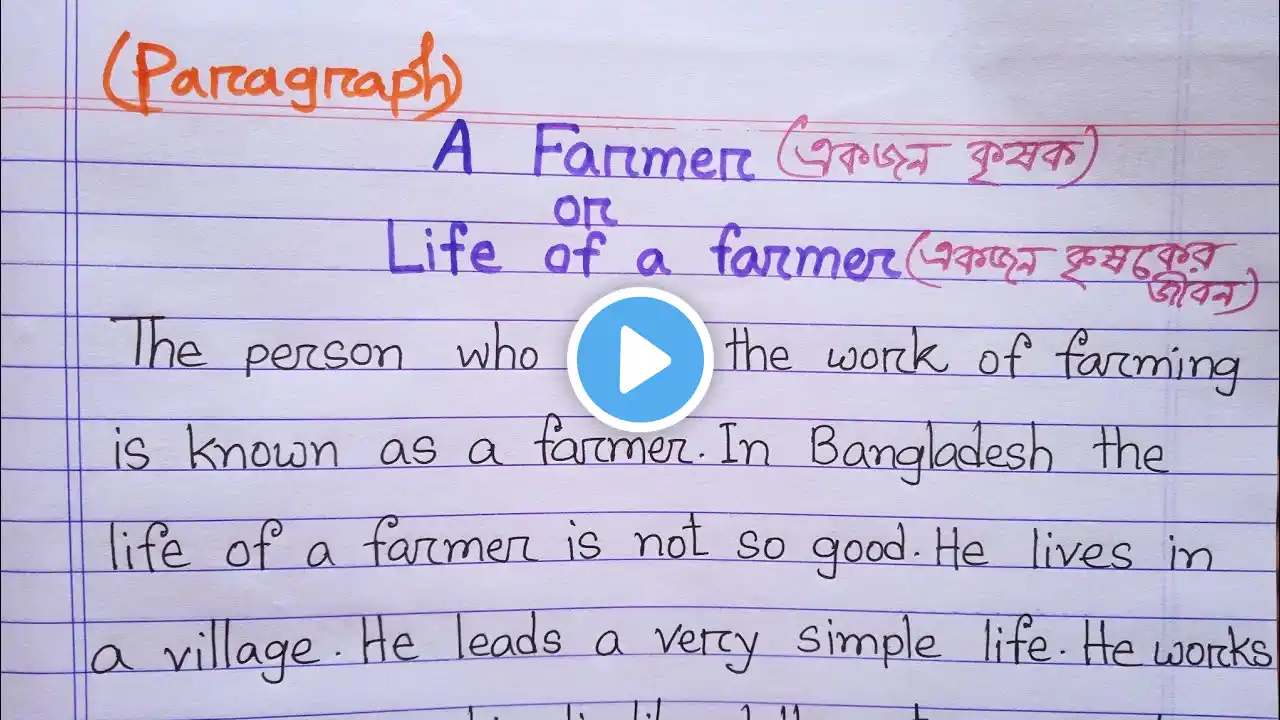 (Paragraph)
A Farmer (একজন কৃষক)
or
Life of a farmer (একজন কৃষকের
জীবন)
The person who the work of farming
is known as a farmer. In Bangladesh the
life of a farmer is not so good. He lives in
a village. He leads a very simple life. He works